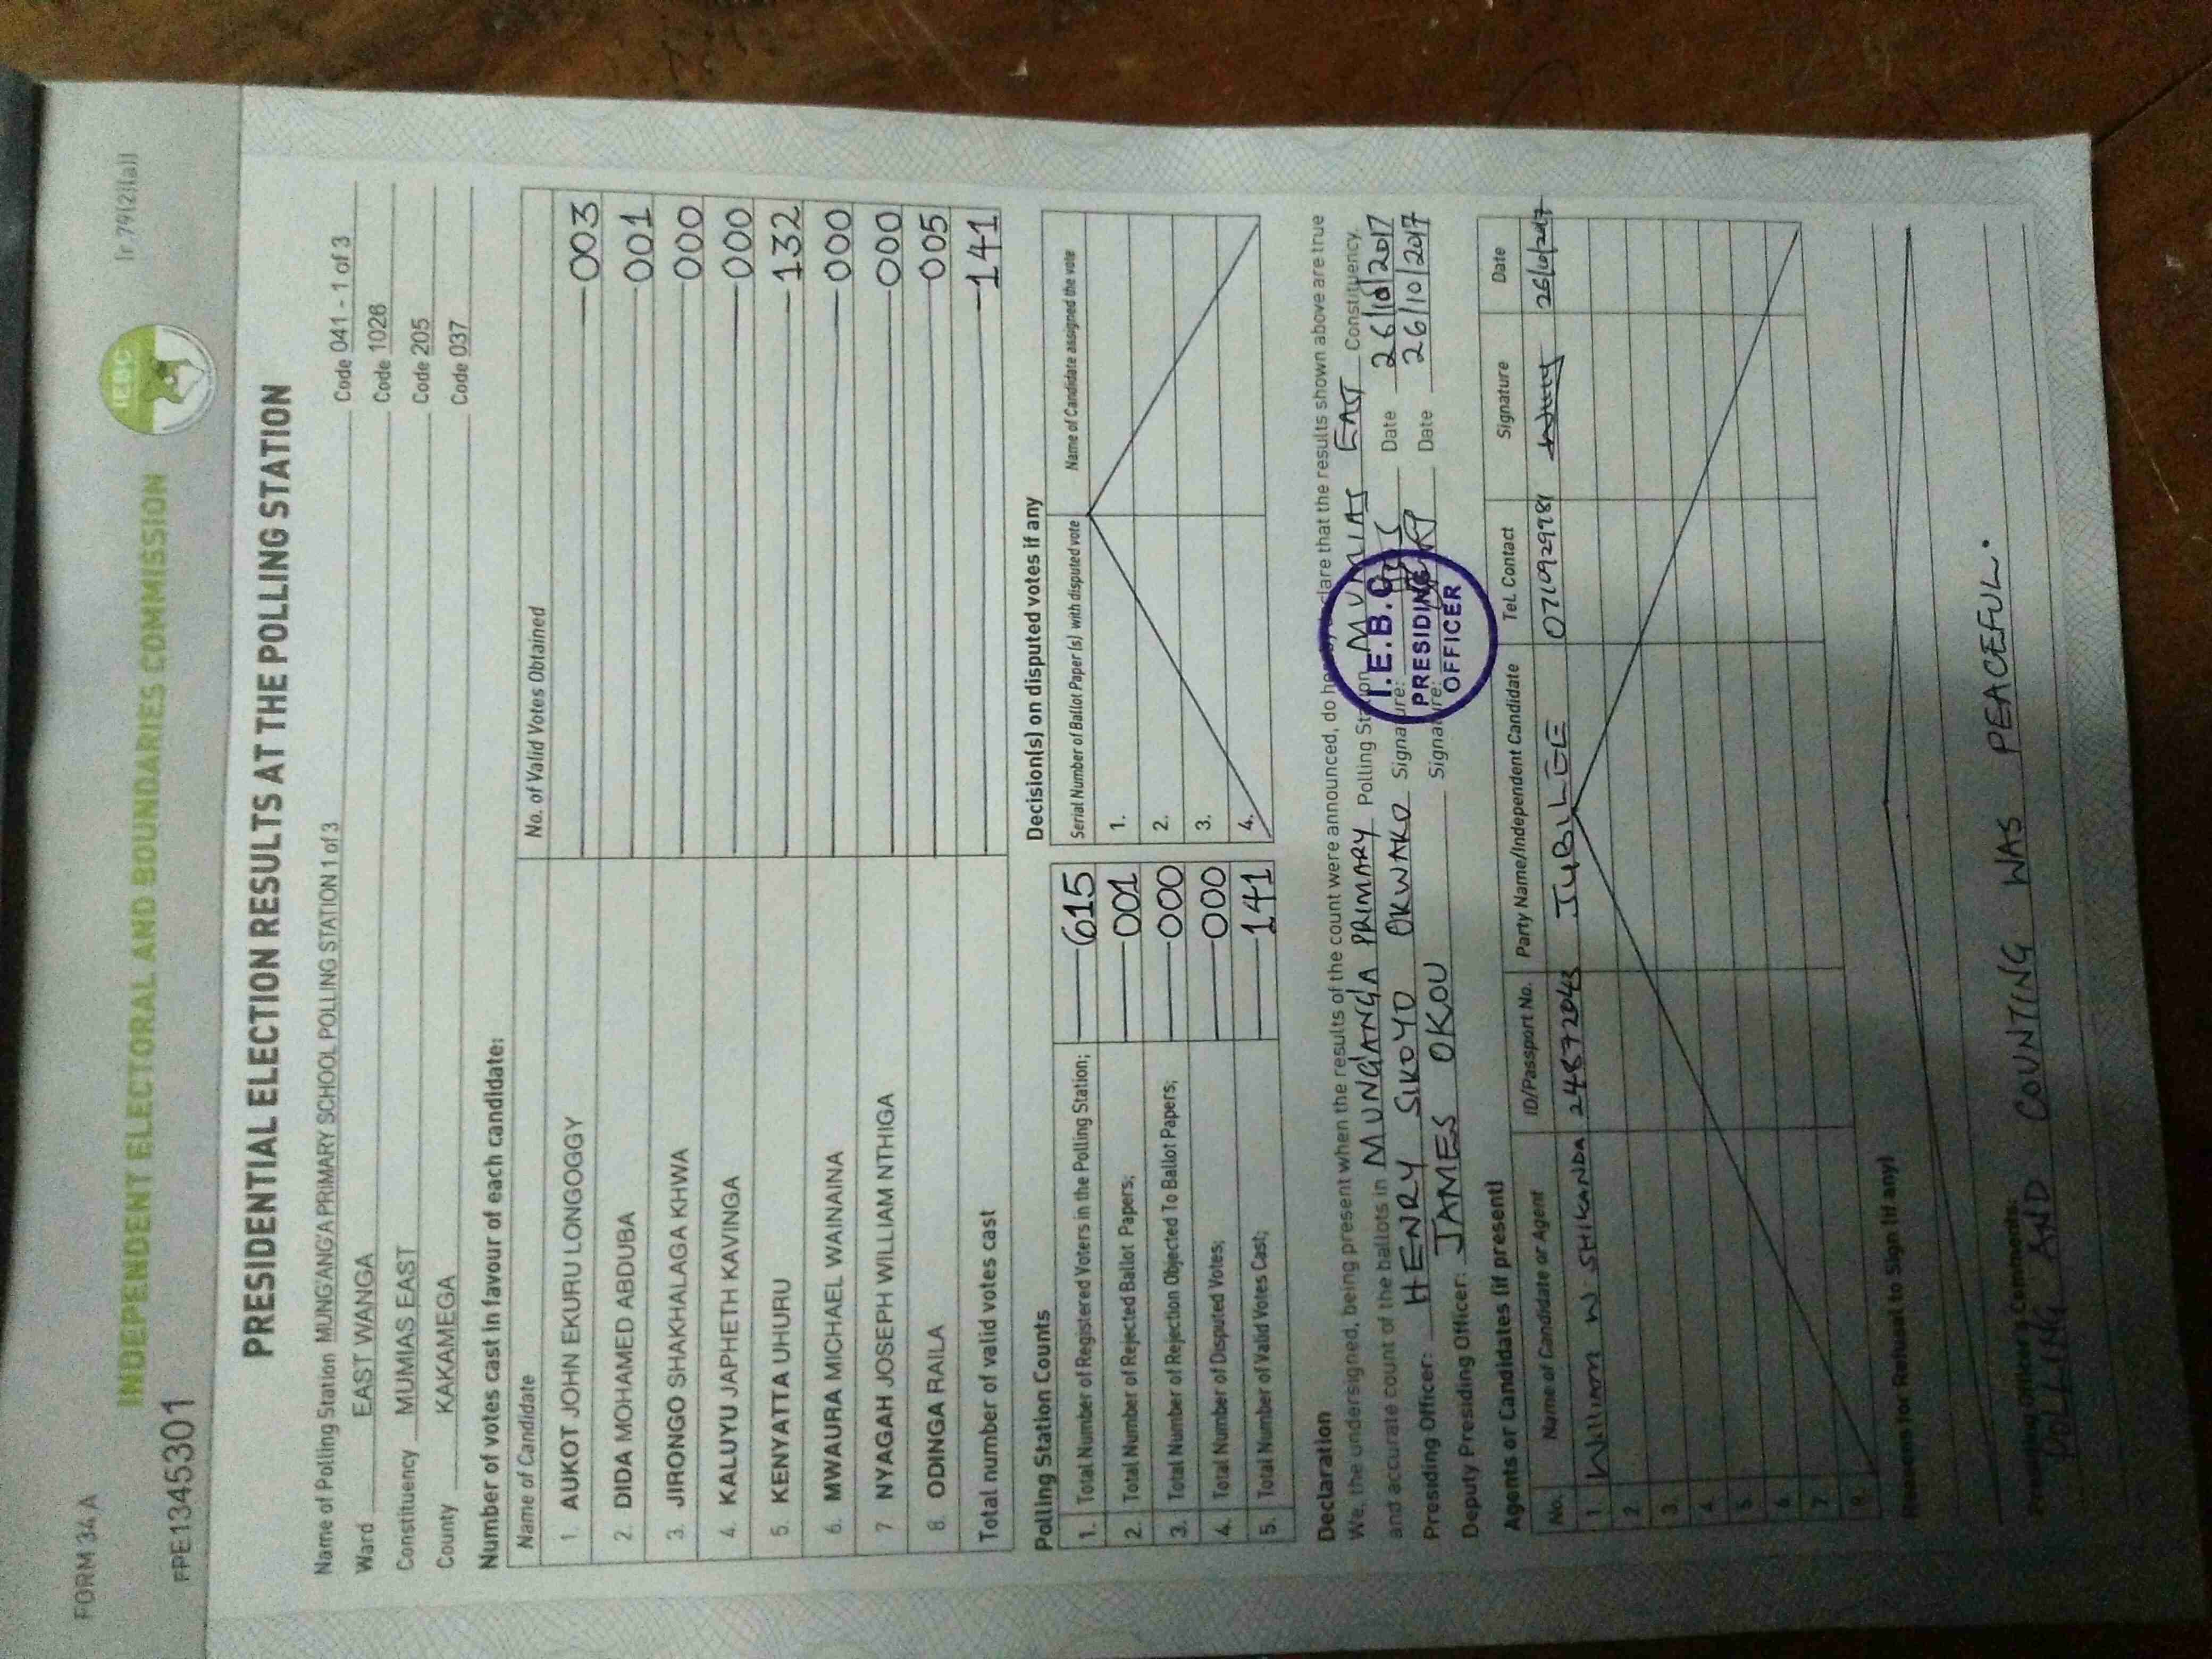 FORM 34A
[r 79(2)(a)]
INDEPENDENT ELECTORAL AND BOUNDARIES COMMISSION
IEBC
PPE1345301
PRESIDENTIAL ELECTION RESULTS AT THE POLLING STATION
Name of Polling Station MUNG'ANG'A PRIMARY SCHOOL POLLING STATION 1 of 3 Code 041 - 1 of 3
Ward EAST WANGA Code 1026
Constituency MUMIAS EAST Code 205
County KAKAMEGA Code 037
Number of votes cast in favour of each candidate:
Name of Candidate No. of Valid Votes Obtained
1. AUKOT JOHN EKURU LONGOGGY 003
2. DIDA MOHAMED ABDUBA 001
3. JIRONGO SHAKHALAGA KHWA 000
4. KALUYU JAPHETH KAVINGA 000
5. KENYATTA UHURU 132
6. MWAURA MICHAEL WAINAINA 000
7 NYAGAH JOSEPH WILLIAM NTHIGA 000
8. ODINGA RAILA 005
Total number of valid votes cast 141
Polling Station Counts
1. Total Number of Registered Voters in the Polling Station; 615
2. Total Number of Rejected Ballot Papers; 001
3. Total Number of Rejection Objected To Ballot Papers; 000
4. Total Number of Disputed Votes; 000
5. Total Number of Valid Votes Cast; 141
Decision(s) on disputed votes if any
Serial Number of Ballot Paper (s) with disputed vote Name of Candidate assigned the vote
1.
2.
3.
4.
Declaration
We, the undersigned, being present when the results of the count were announced, do hereby declare that the results shown above are true
and accurate count of the ballots in MUNG'ANG'A PRIMARY Polling Station MUMIAS EAST Constituency.
Presiding Officer: HENRY SIKOYO OKWAKO Signature: Date 26/10/2017
Deputy Presiding Officer: JAMES OKOU Signature: Date 26/10/2017
I.E.B.C
PRESIDING
OFFICER
Agents or Candidates (if present)
No. Name of Candidate or Agent ID/Passport No. Party Name/Independent Candidate Tel. Contact Signature Date
1 William W. SHIKANDA JUBILEE 26/10/2017
2.
3.
4.
5.
6.
7.
Reasons for Refusal to Sign (if any)
Presiding Officer's Comments:
POLLING AND COUNTING WAS PEACEFUL.